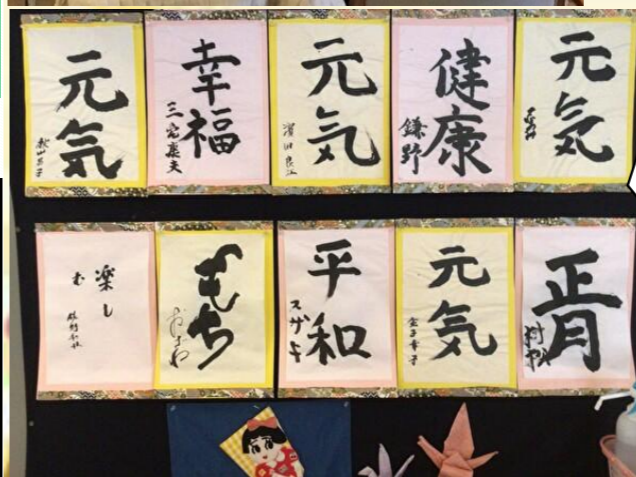 元気
幸福
三宅康夫
元気
濱田良江
健康
鎌野
元気
楽し
む
もち
平和
スザキ
元気
金子幸子
正月